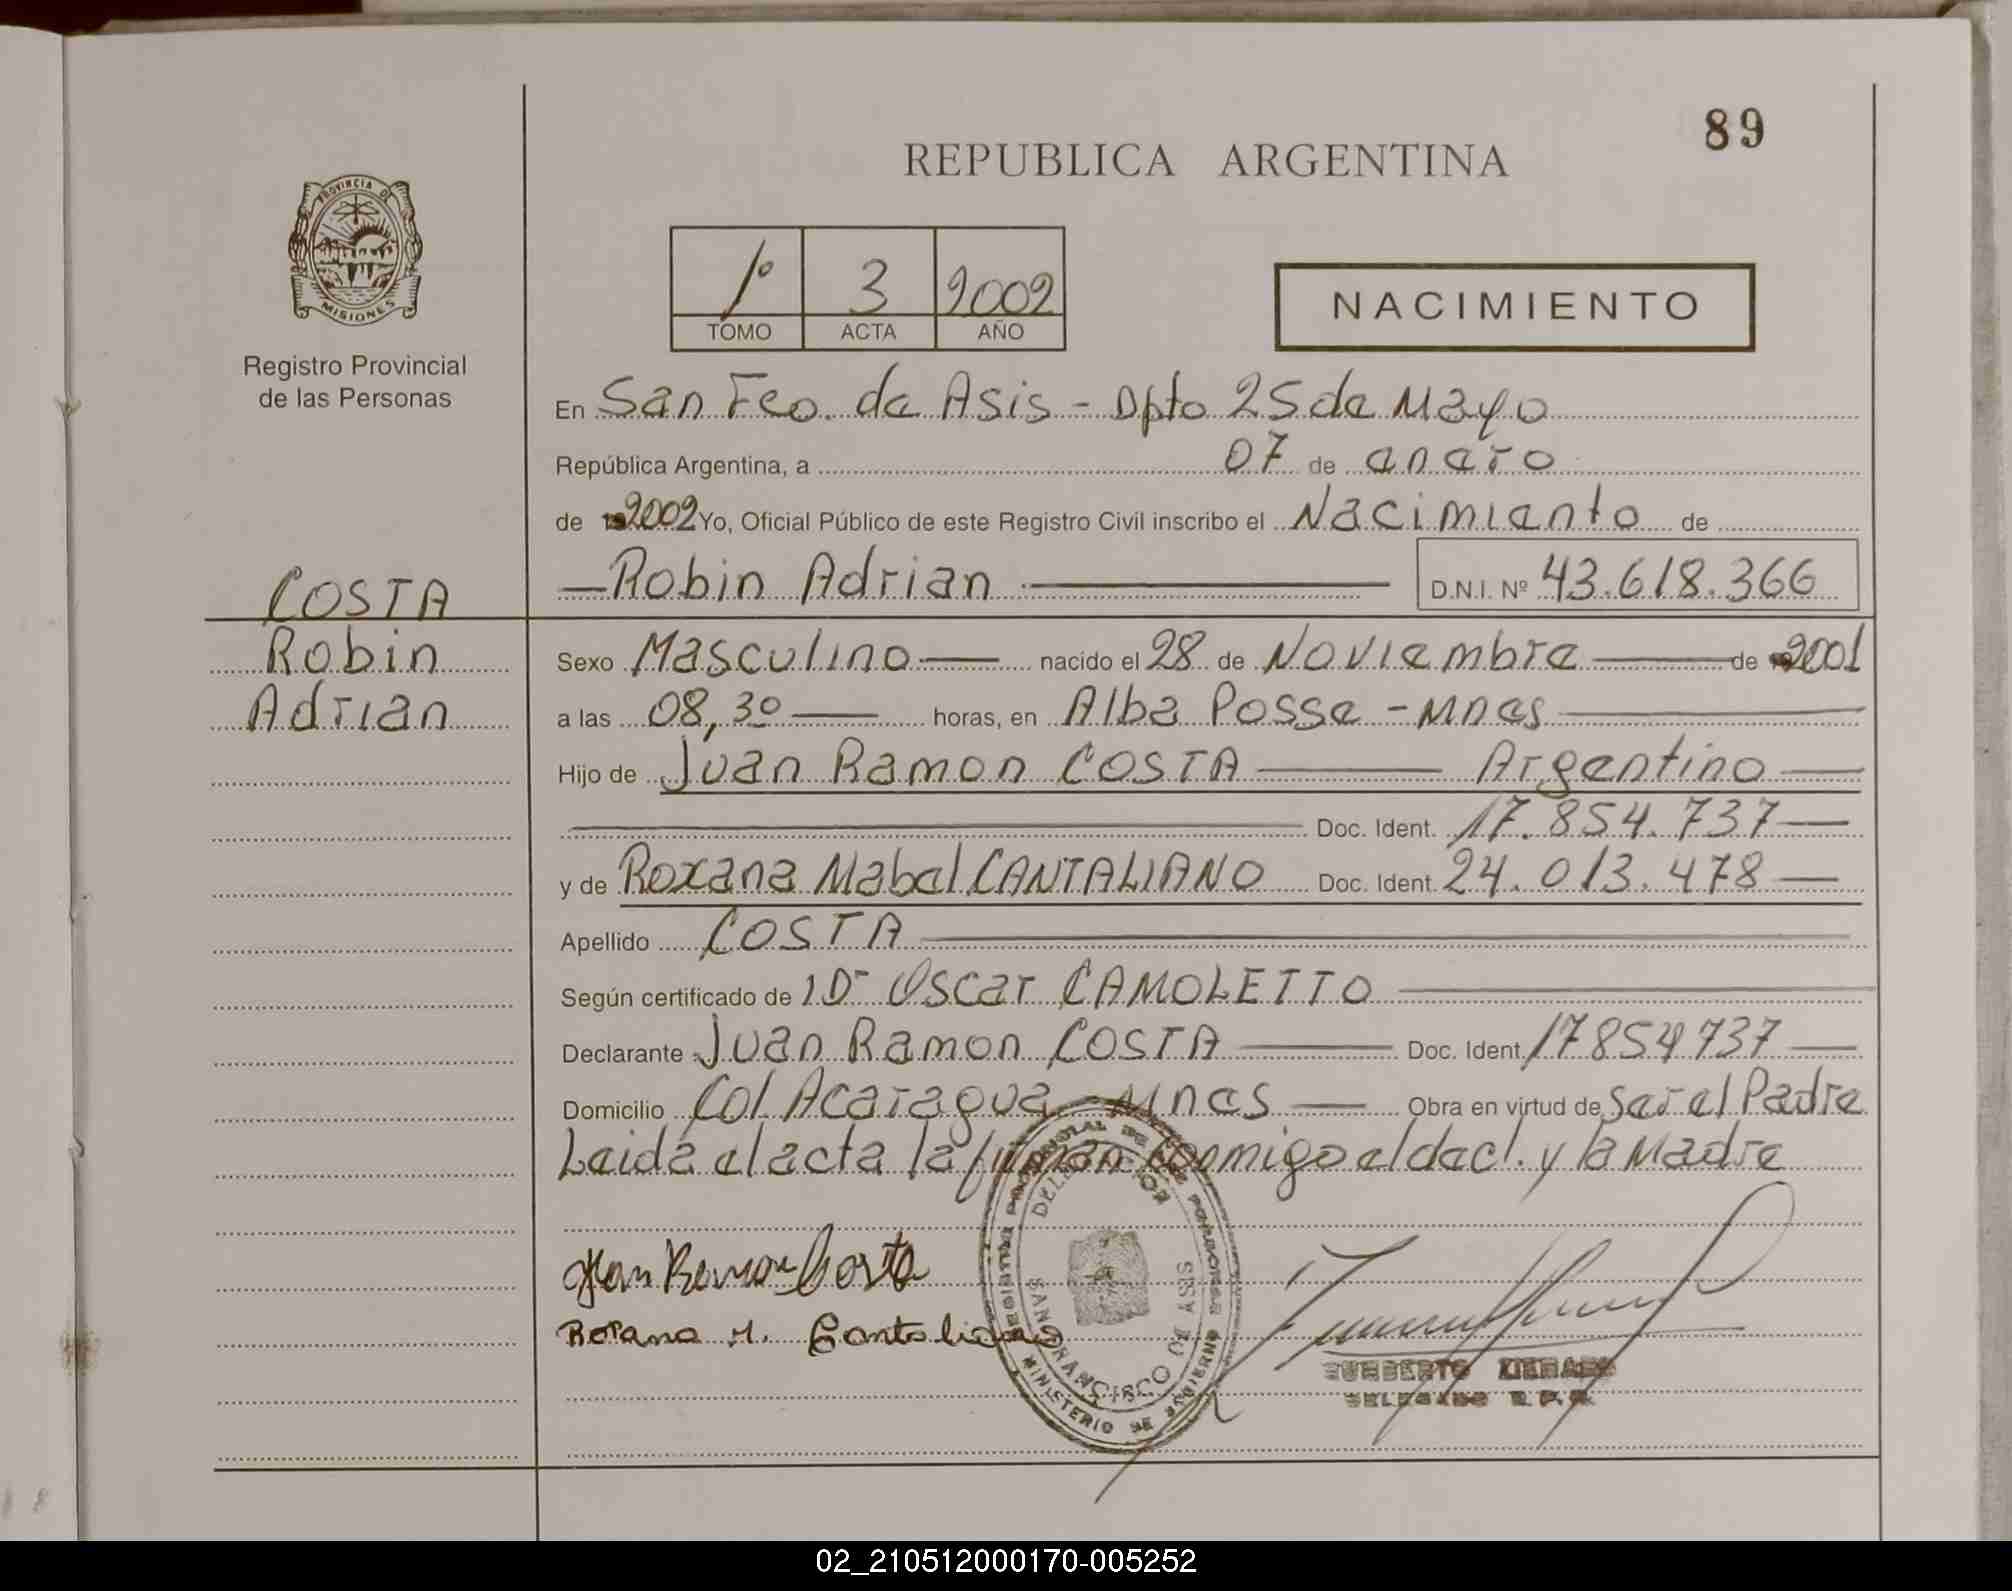 89
REPUBLICA ARGENTINA
PROVINCIA DE
MISIONES
Registro Provincial
de las Personas
1º 3 2002
TOMO ACTA AÑO
NACIMIENTO
En San Fco. de Asis - Dpto 25 de Mayo
República Argentina, a 07 de enero
de 2002 Yo, Oficial Público de este Registro Civil inscribo el Nacimiento de
Robin Adrian D.N.I. Nº 43.618.366
COSTA
Robin
Adrian
Sexo Masculino nacido el 28 de Noviembre de 2001
a las 08,30 horas, en Alba Posse - Mnes
Hijo de Juan Ramon COSTA Argentino
Doc. Ident. 17.854.737
y de Roxana Mabel CANTALIANO Doc. Ident. 24.013.478
Apellido COSTA
Según certificado de Dr Oscar CAMOLETTO
Declarante Juan Ramon COSTA Doc. Ident. 17854737
Domicilio Col Acaragua - Mnes Obra en virtud de Ser el Padre
Leida el acta la firman conmigo el decl. y la Madre
Juan Ramon Costa
Roxana M. Cantaliano
REGISTRO PROVINCIAL DE LAS PERSONAS
SAN FRANCISCO DE ASIS
MINISTERIO DE GOBIERNO
DELEGADO R.P.P.
02_210512000170-005252